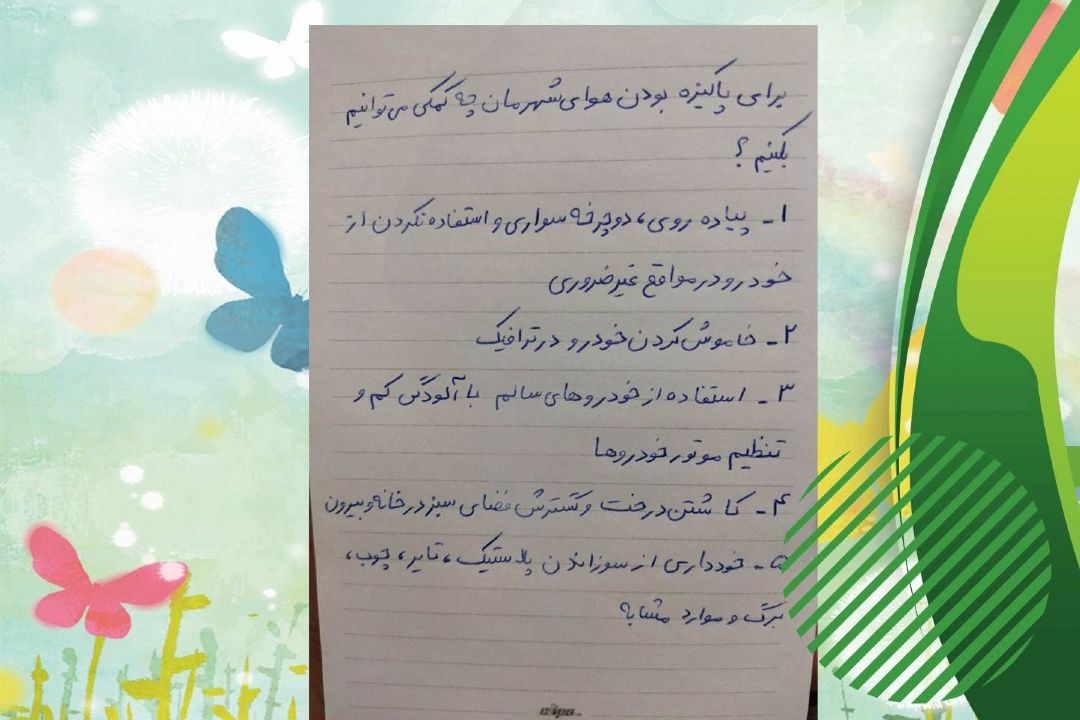 برای پاکیزه بودن هوای شهرمان چه کمکی می‌توانیم
بکنیم ؟
۱- پیاده روی، دوچرخه سواری و استفاده نکردن از
خودرو در مواقع غیرضروری
۲- خاموش کردن خودرو در ترافیک
۳- استفاده از خودروهای سالم با آلودگی کم و
تنظیم موتور خودروها
۴- کاشتن درخت و گسترش فضای سبز در خانه و بیرون
۵- خودداری از سوزاندن پلاستیک، تایر، چوب،
برگ و موارد مشابه
clips